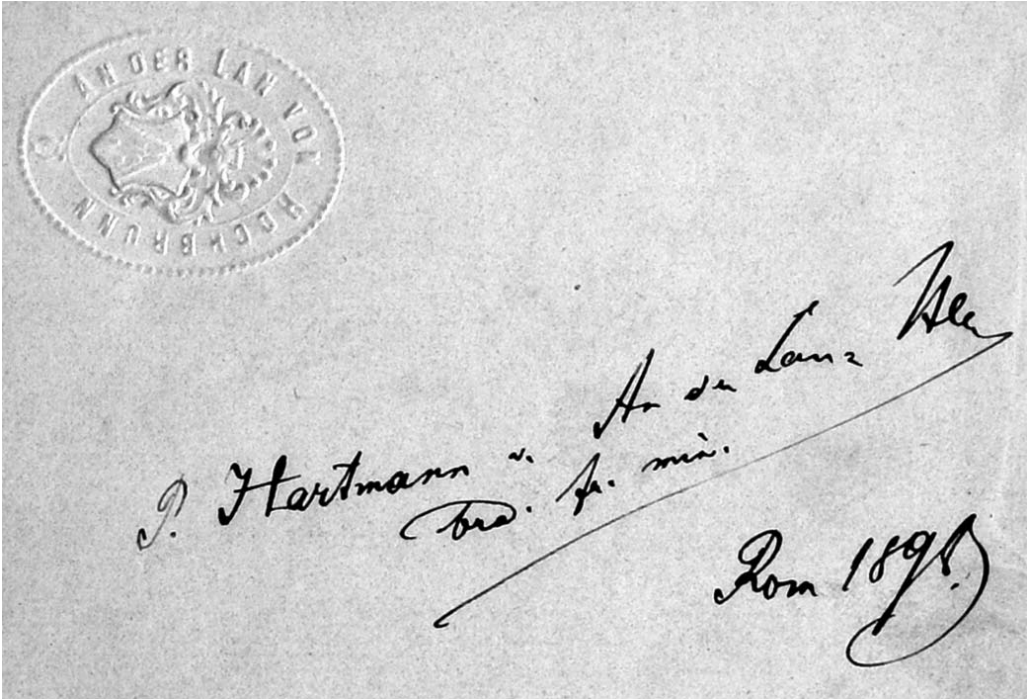 AN DER LAN VON HOCHBRUNN
P. Hartmann v. An der Lan
ord. fr. min.
Rom 1898.